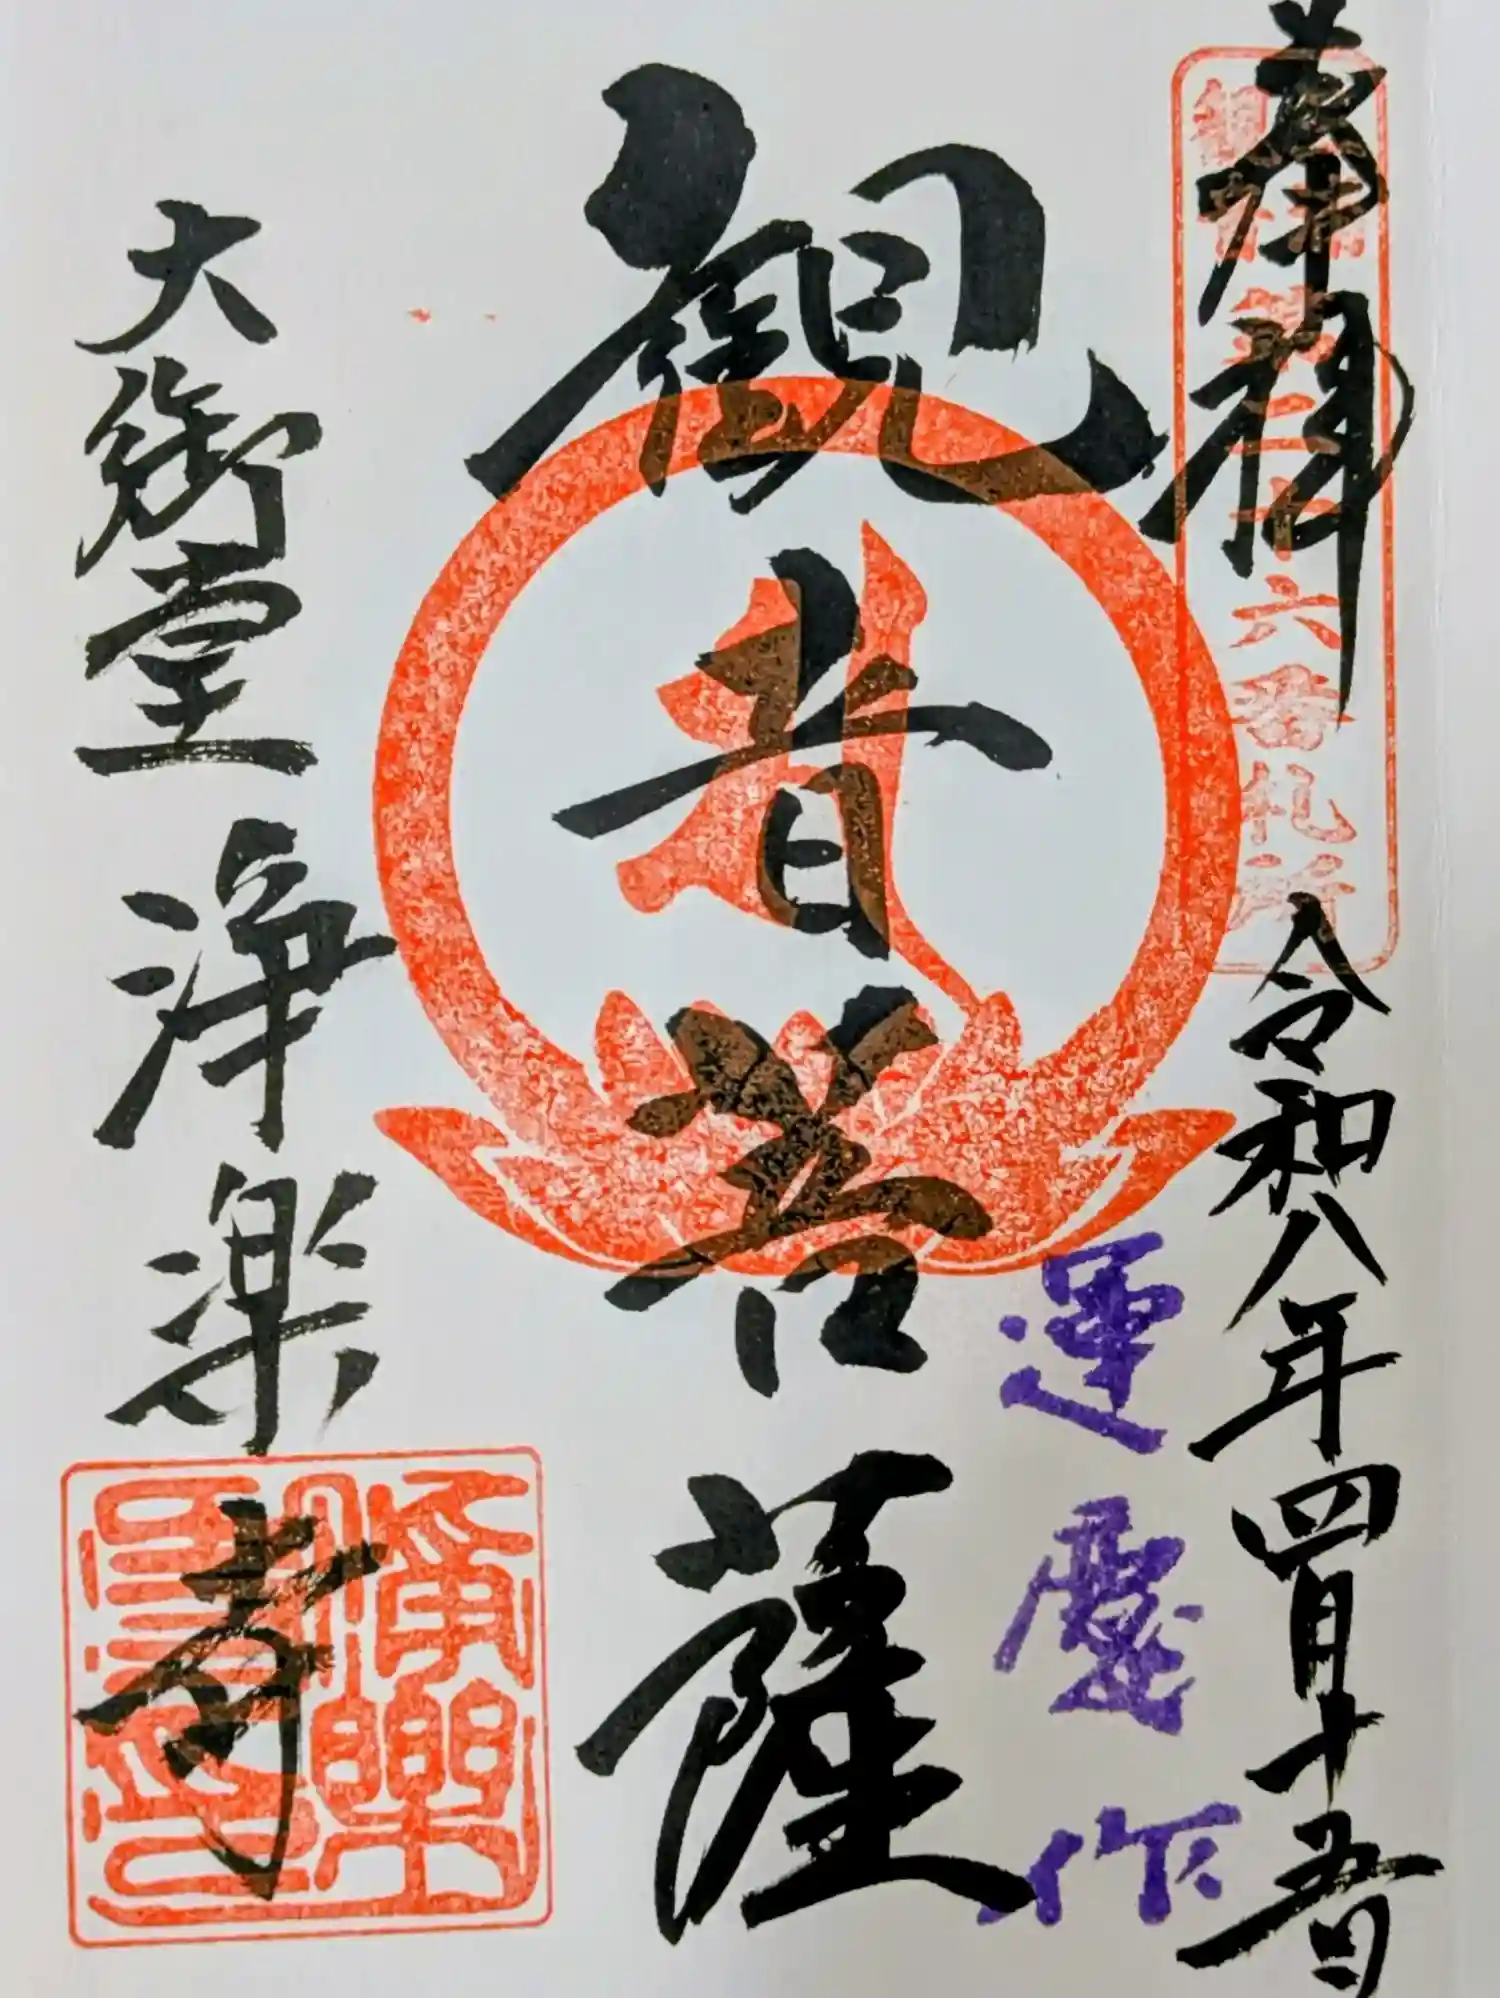 奉拝
令和八年四月十五日
運慶作
観音菩薩
大御堂
浄楽寺
六番札所